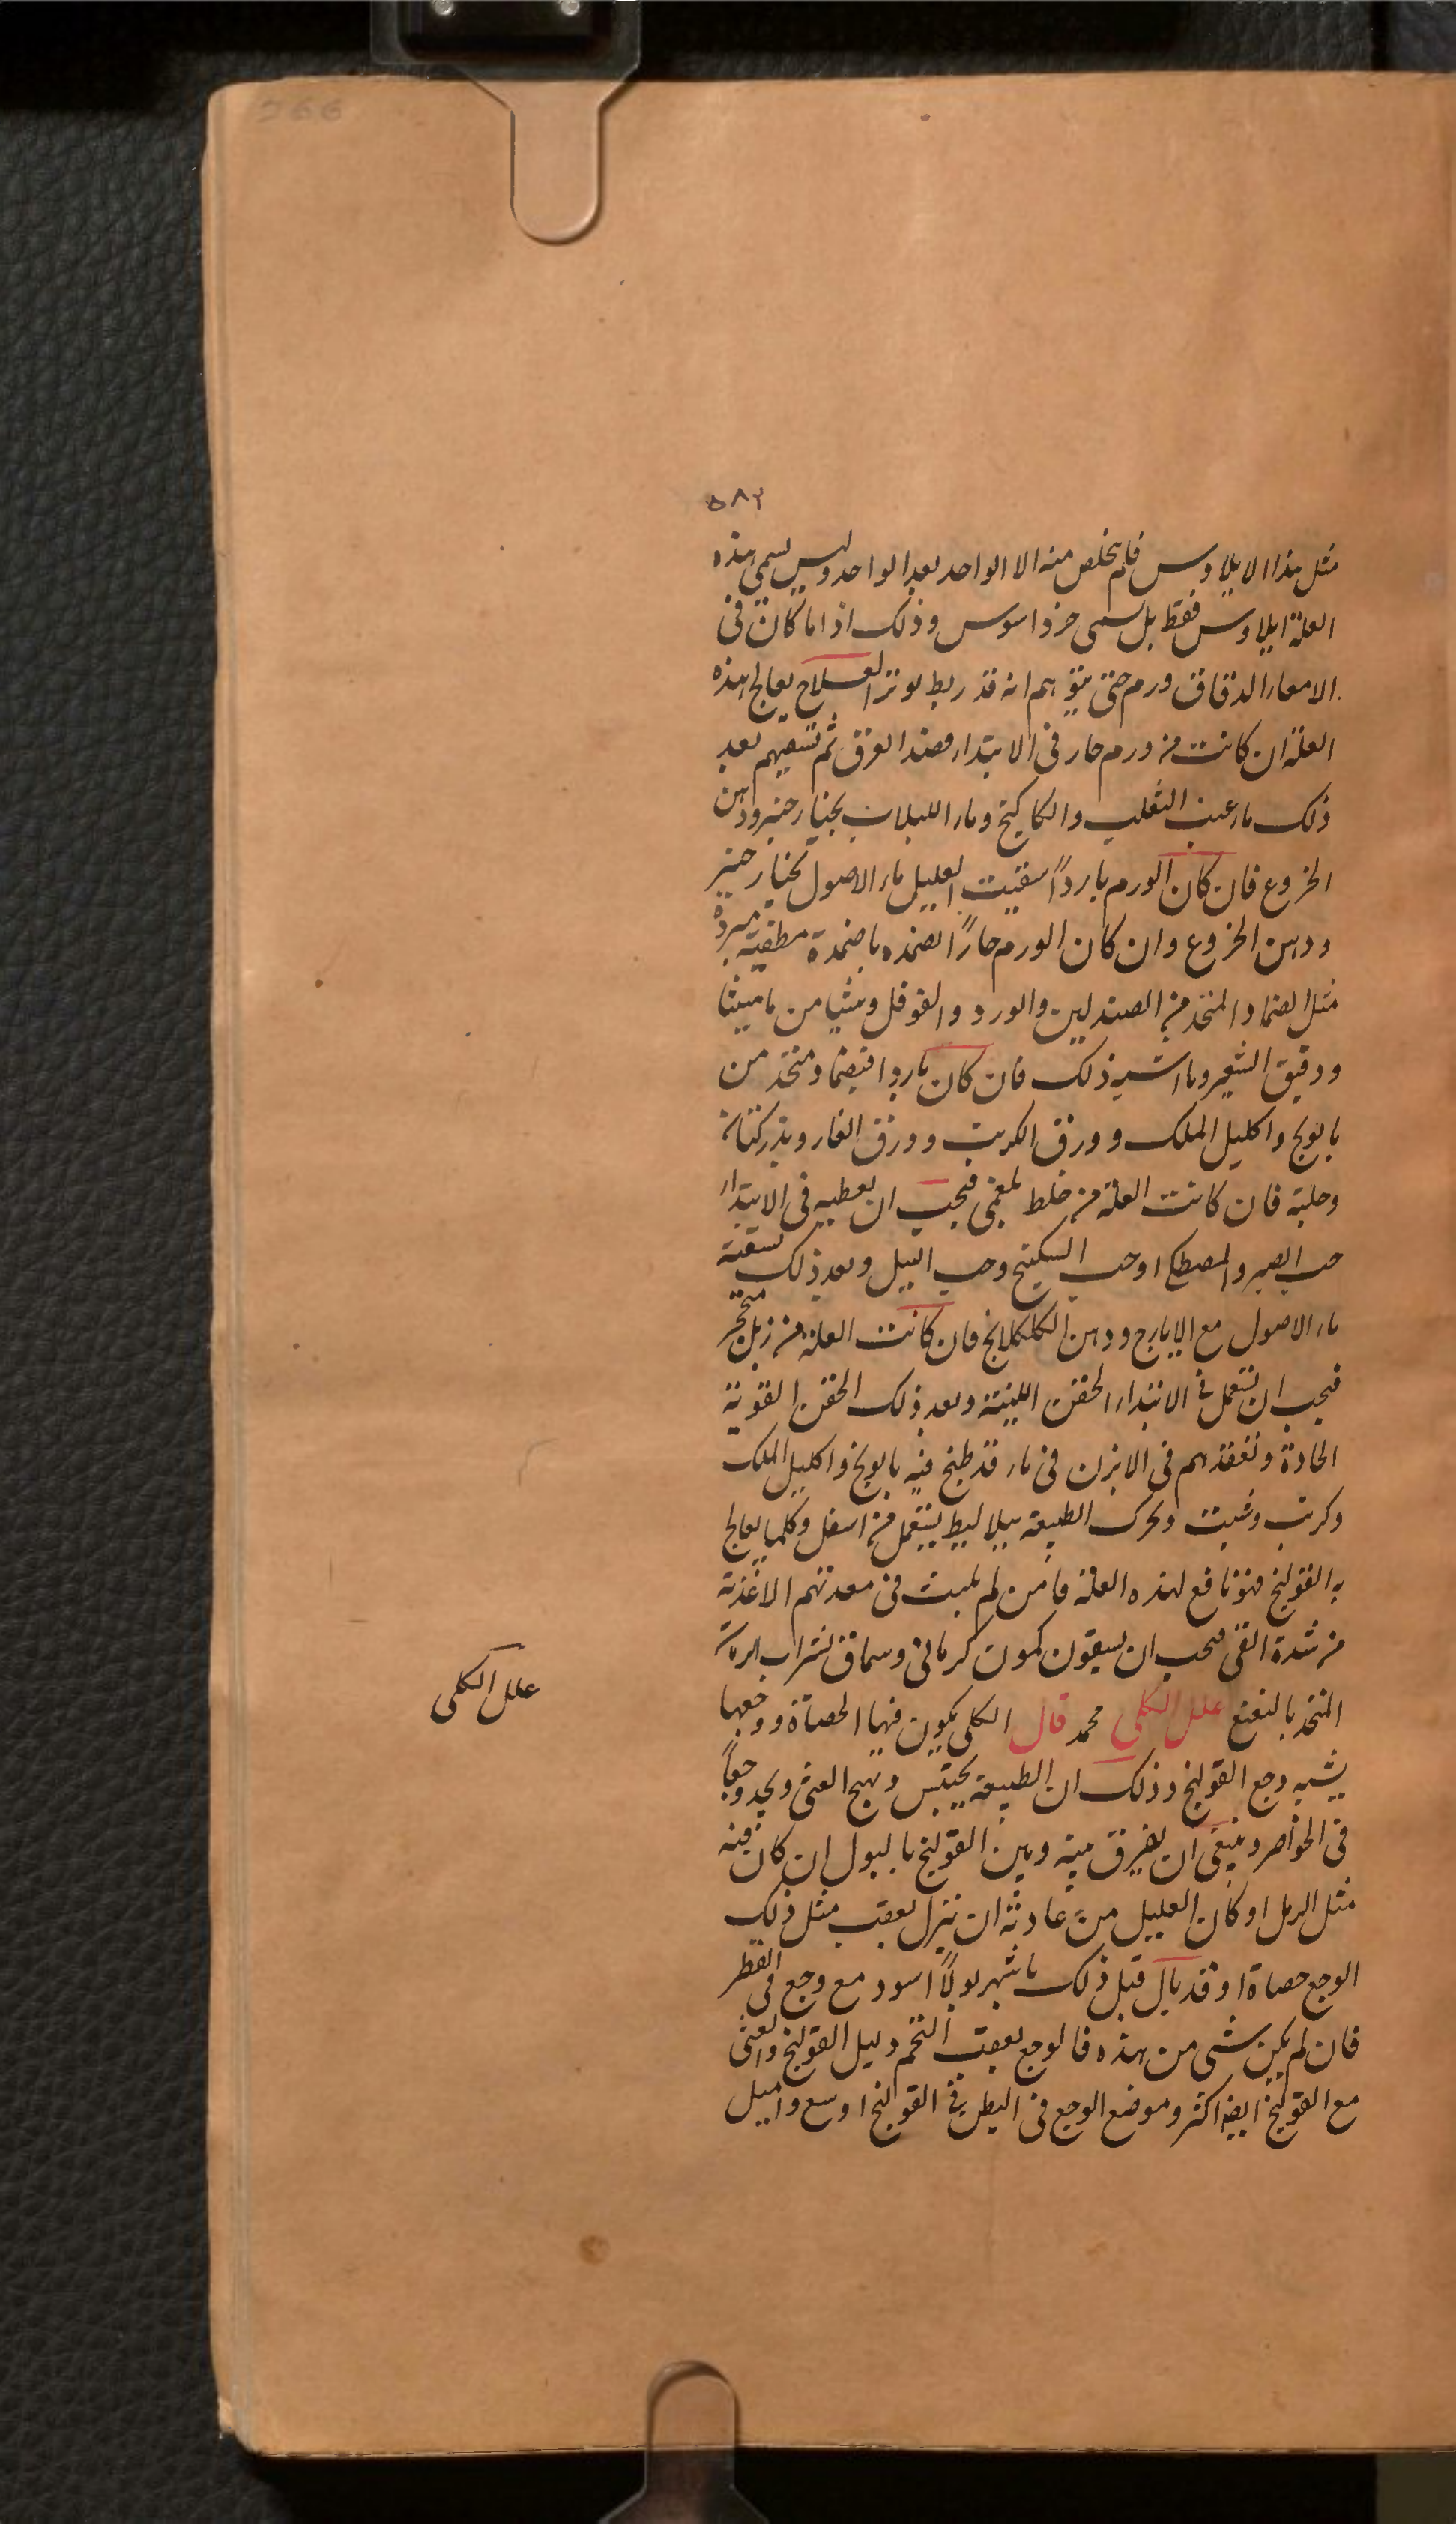 ٥٨٢
مثل هذا الايلاوس فلم يخلص منه الا الواحد بعد الواحد وليس يسمى هذه
العلة ايلاوس فقط بل يسمى خرداسوس وذلك اذا ما كان فى
الامعاء الدقاق ورم حتى يتوهم انه قد ربط بوتر العلاج يعالج هذه
العلة ان كانت من ورم حار فى الابتداء فصد العرق ثم تسقيهم بعد
ذلك ماء عنب الثعلب والكاكنج وماء اللبلاب بخيار شنبر ودهن
الخروع فان كان الورم باردًا سقيت العليل ماء الاصول بخيار شنبر
ودهن الخروع وان كان الورم حارًا تضمده باضمدة مطفية مبردة
مثل الضماد المتخذ من الصندلين والورد والفوفل وشيا من ماميثا
ودقيق الشعير وما اشبه ذلك فان كان باردا فبضماد متخذ من
بابونج واكليل الملك وورق الكرنب وورق الغار وبذر كتان
وحلبة فان كانت العلة من خلط بلغمى فيجب ان يعطيه فى الابتداء
حب الصبر والمصطكا وحب السكبينج وحب النيل وبعد ذلك تسقيه
ماء الاصول مع الايارج ودهن الكلكلانج فان كانت العلة من زبل متحجر
فيجب ان تستعمل فى الابتداء الحقن اللينة وبعد ذلك الحقن القوية
الحادة وتقعدهم فى الابزن فى ماء قد طبخ فيه بابونج واكليل الملك
وكرنب وشبت وتحرك الطبيعة ببلاليط يستعمل من اسفل وكلما يعالج
به القولنج فهو نافع لهذه العلة فأمن لم يلبث فى معدتهم الاغذية
من شدة القى فيجب ان يسقون كمون كرمانى وسماق بشراب الرمان
المتخذ بالنعنع علل الكلى محمد قال الكلى يكون فيها الحصاة ووجعها
يشبه وجع القولنج وذلك ان الطبيعة يحتبس ويهيج الغثى ويجد وجعًا
فى الخواصر وينبغى ان يفرق بينه وبين القولنج بالبول ان كان فيه
مثل الرمل او كان العليل من عادته ان ينزل بعقب مثل ذلك
الوجع حصاة او قد بال قبل ذلك باشهر بولًا اسود مع وجع فى القطن
فان لم يكن شى من هذه فالوجع بعقب التخم دليل القولنج والغثى
مع القولنج ايضا اكثر وموضع الوجع فى البطن فى القولنج اوسع واميل
علل الكلى